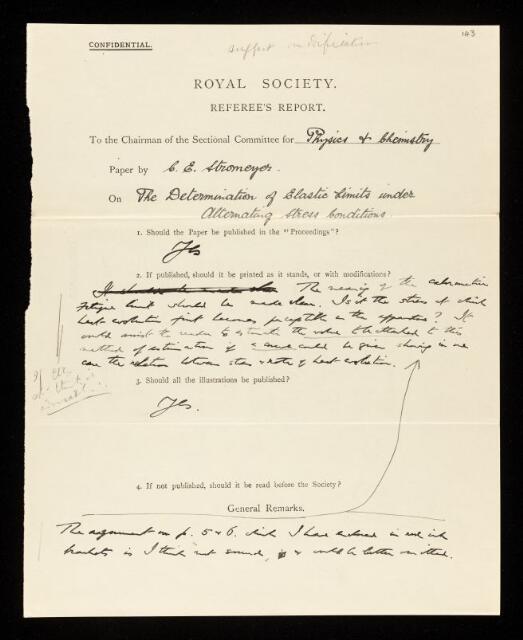 143
CONFIDENTIAL.
suggest modification
ROYAL SOCIETY.
REFEREE'S REPORT.
To the Chairman of the Sectional Committee for Physics & Chemistry
Paper by C. E. Stromeyer.
On The Determination of Elastic Limits under
Alternating Stress Conditions.
1. Should the Paper be published in the "Proceedings"?
Yes
2. If published, should it be printed as it stands, or with modifications?
The meaning of the calorimetric
fatigue limit should be made clear. Is it the stress at which
heat evolution first becomes perceptible in the apparatus? It
would assist the reader to estimate the value to be attached to this
method of estimation if a curve could be given showing in one
case the relation between stress & rate of heat evolution.
3. Should all the illustrations be published?
Yes.
4. If not published, should it be read before the Society?
General Remarks.
The argument on p. 5 & 6 which I have enclosed in red ink
brackets is I think not sound, & would be better omitted.